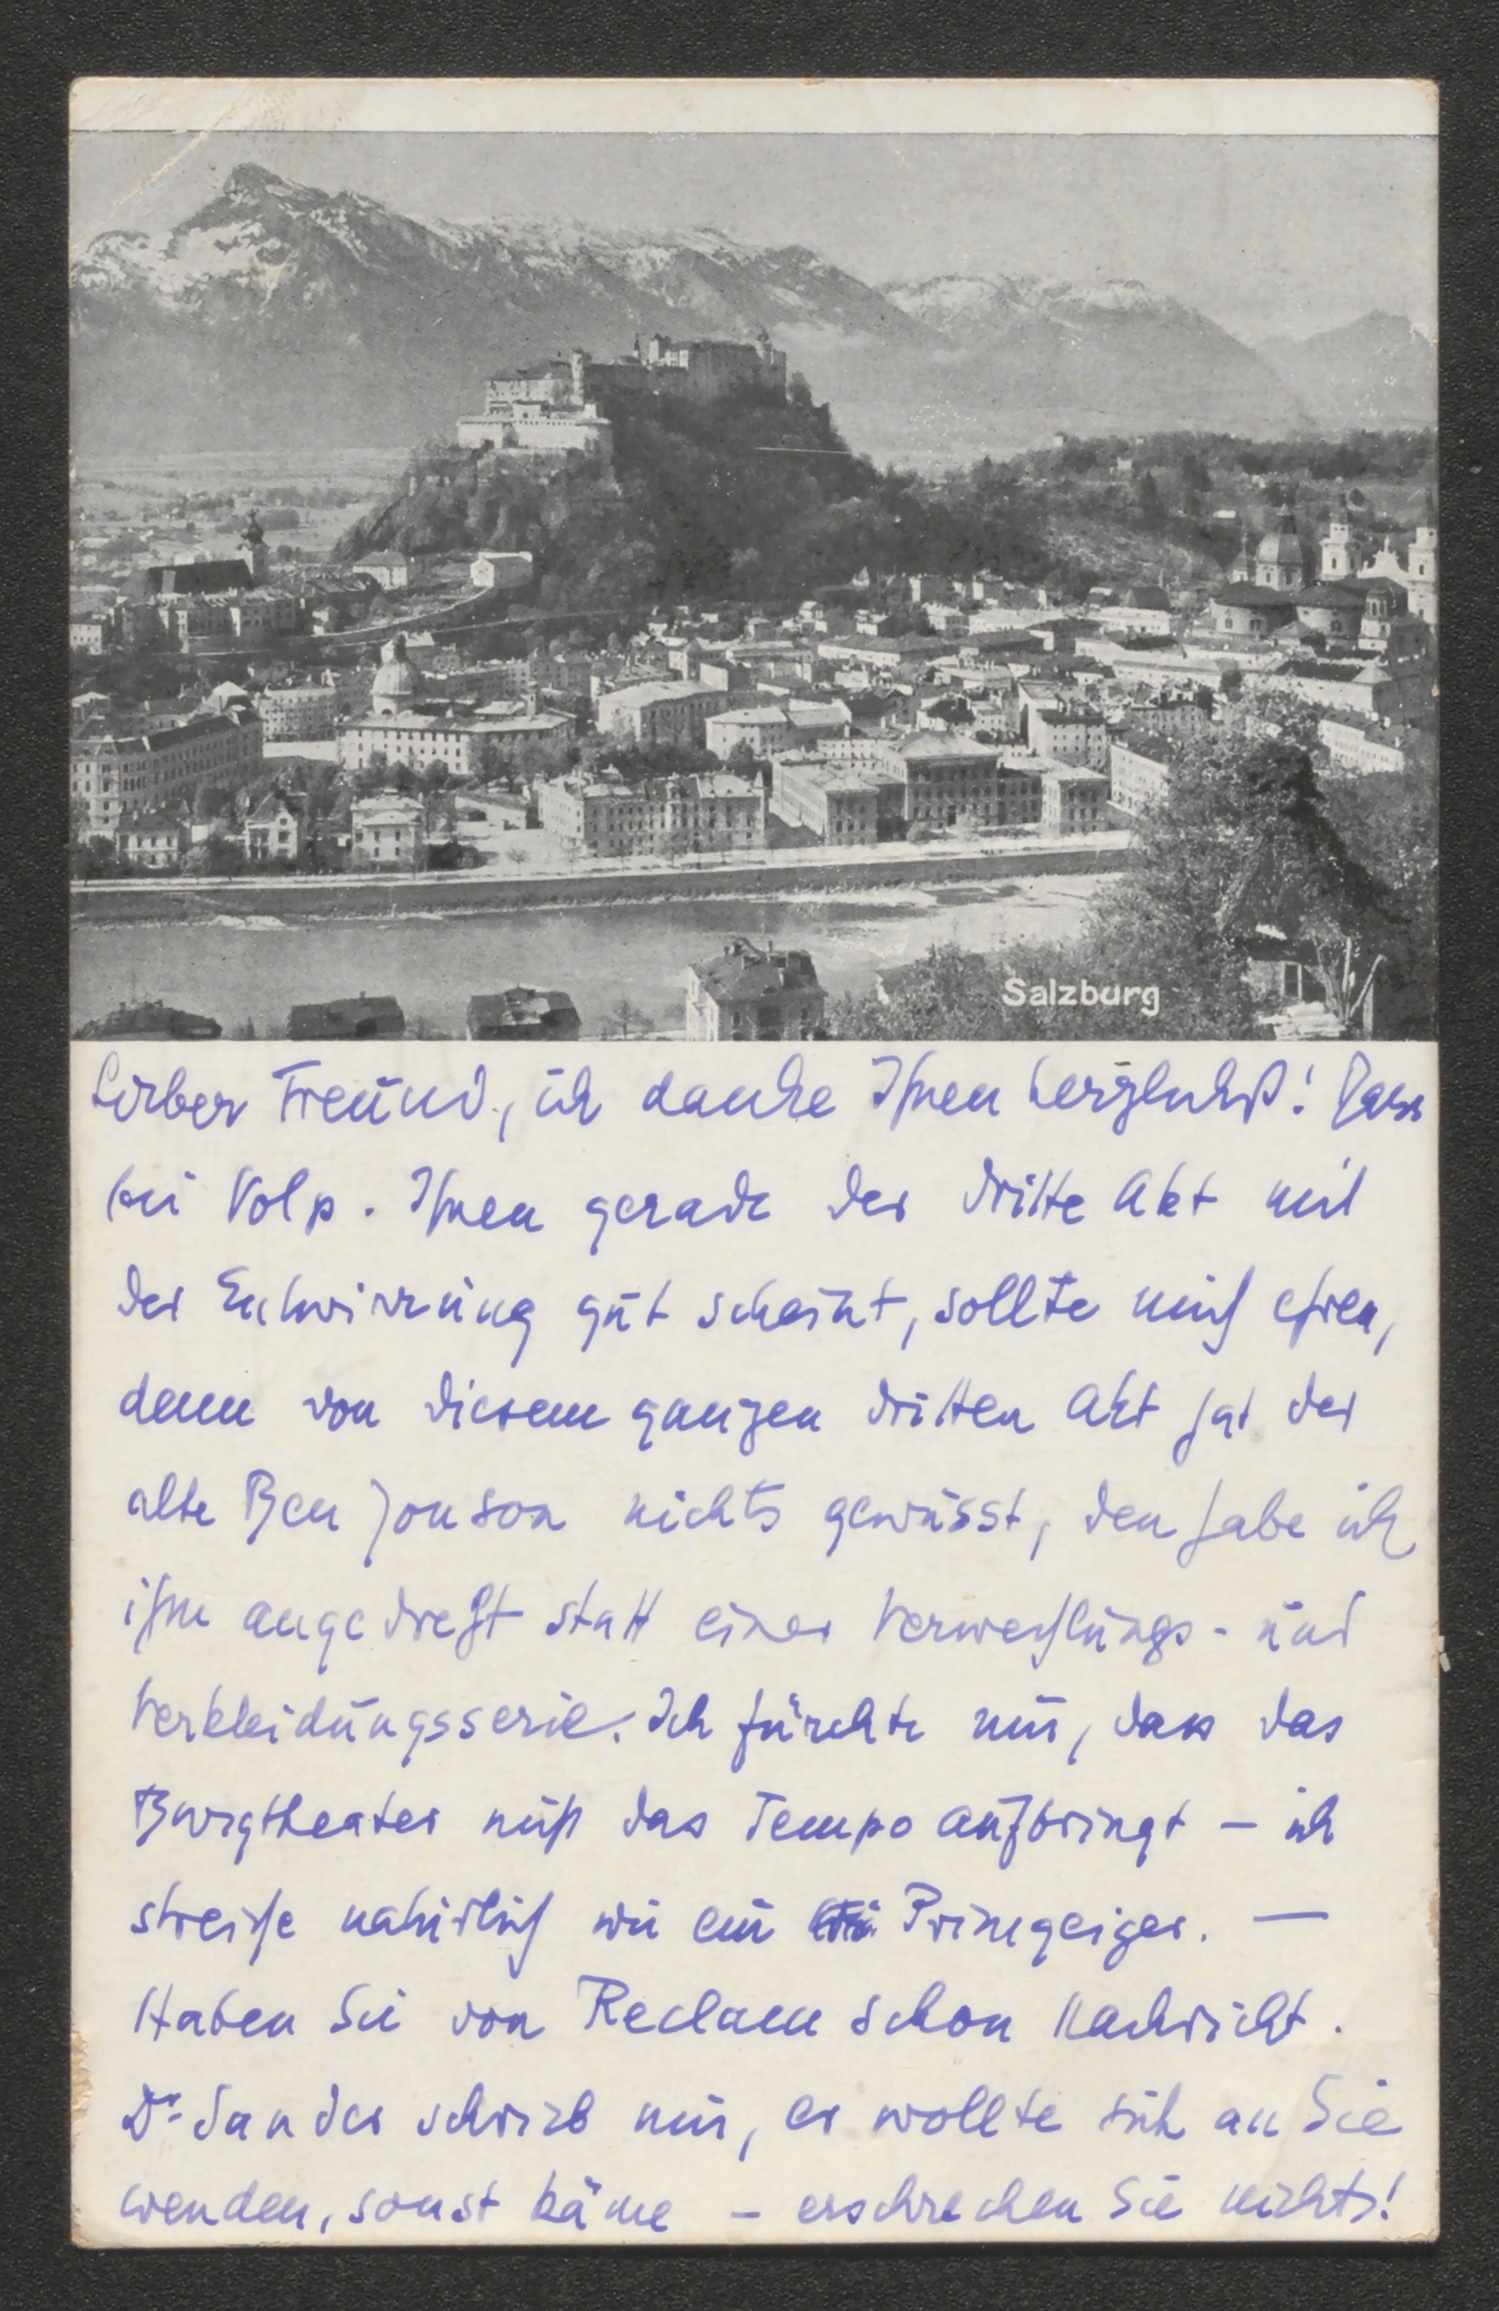 Salzburg
Lieber Freund, ich danke Ihnen herzlichst! Dass
bei Volp. Ihnen gerade der dritte Akt mit
der Entwirrung gut scheint, sollte mich ehren,
denn von diesem ganzen dritten Akt hat der
alte Ben Jonson nichts gewusst, den habe ich
ihm angedreht statt einer Verwechslungs- und
Verkleidungsserie. Ich fürchte nur, dass das
Burgtheater nicht das Tempo aufbringt – ich
streiche natürlich wie ein Primgeiger. —
Haben Sie von Reclam schon Nachricht.
Dr. Sander schrieb mir, er wollte sich an Sie
wenden, sonst käme – erschrecken Sie nicht!